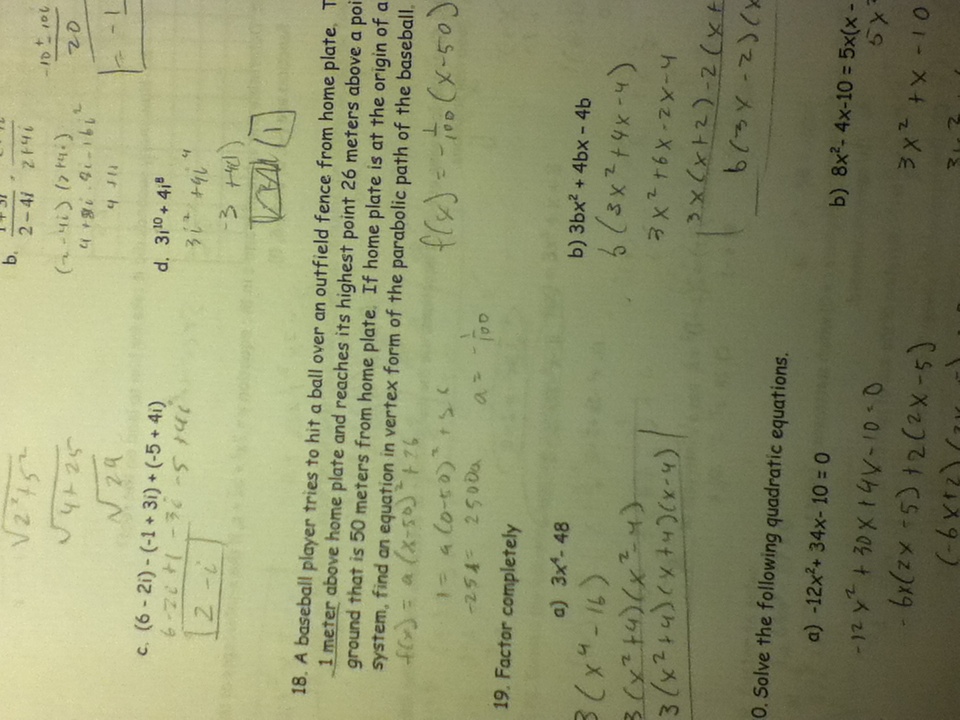 √2²+5²
√4+25
√29
b.
2 - 4i 2+4i
(2-4i) (2+4i)
4 +8i - 8i - 16i²
20
= -1
c. (6 - 2i) - (-1 + 3i) + (-5 + 4i)
6-2i+1 -3i -5 +4i
2 - i
d. 3i¹⁰ + 4i⁸
3i² +4i⁴
-3 +4(1)
1
18. A baseball player tries to hit a ball over an outfield fence from home plate. T
1 meter above home plate and reaches its highest point 26 meters above a poi
ground that is 50 meters from home plate. If home plate is at the origin of a
system, find an equation in vertex form of the parabolic path of the baseball.
f(x) = a(x-50)² +26
f(x) = -1/100 (x-50)
1= a(0-50)² +26
2500a a= -1/100
19. Factor completely
a) 3x⁴- 48
3(x⁴-16)
3(x²+4)(x²-4)
3(x²+4)(x+4)(x-4)
b) 3bx² + 4bx - 4b
b(3x²+4x-4)
3x²+6x-2x-4
3x(x+2)-2(x+
b(3x-2)(x
0. Solve the following quadratic equations.
a) -12x²+ 34x- 10 = 0
-12x²+30x+4x-10=0
-6x(2x-5)+2(2x-5)
(-6x+2)
b) 8x²- 4x-10 = 5x(x -
5x²
3x² +x -10